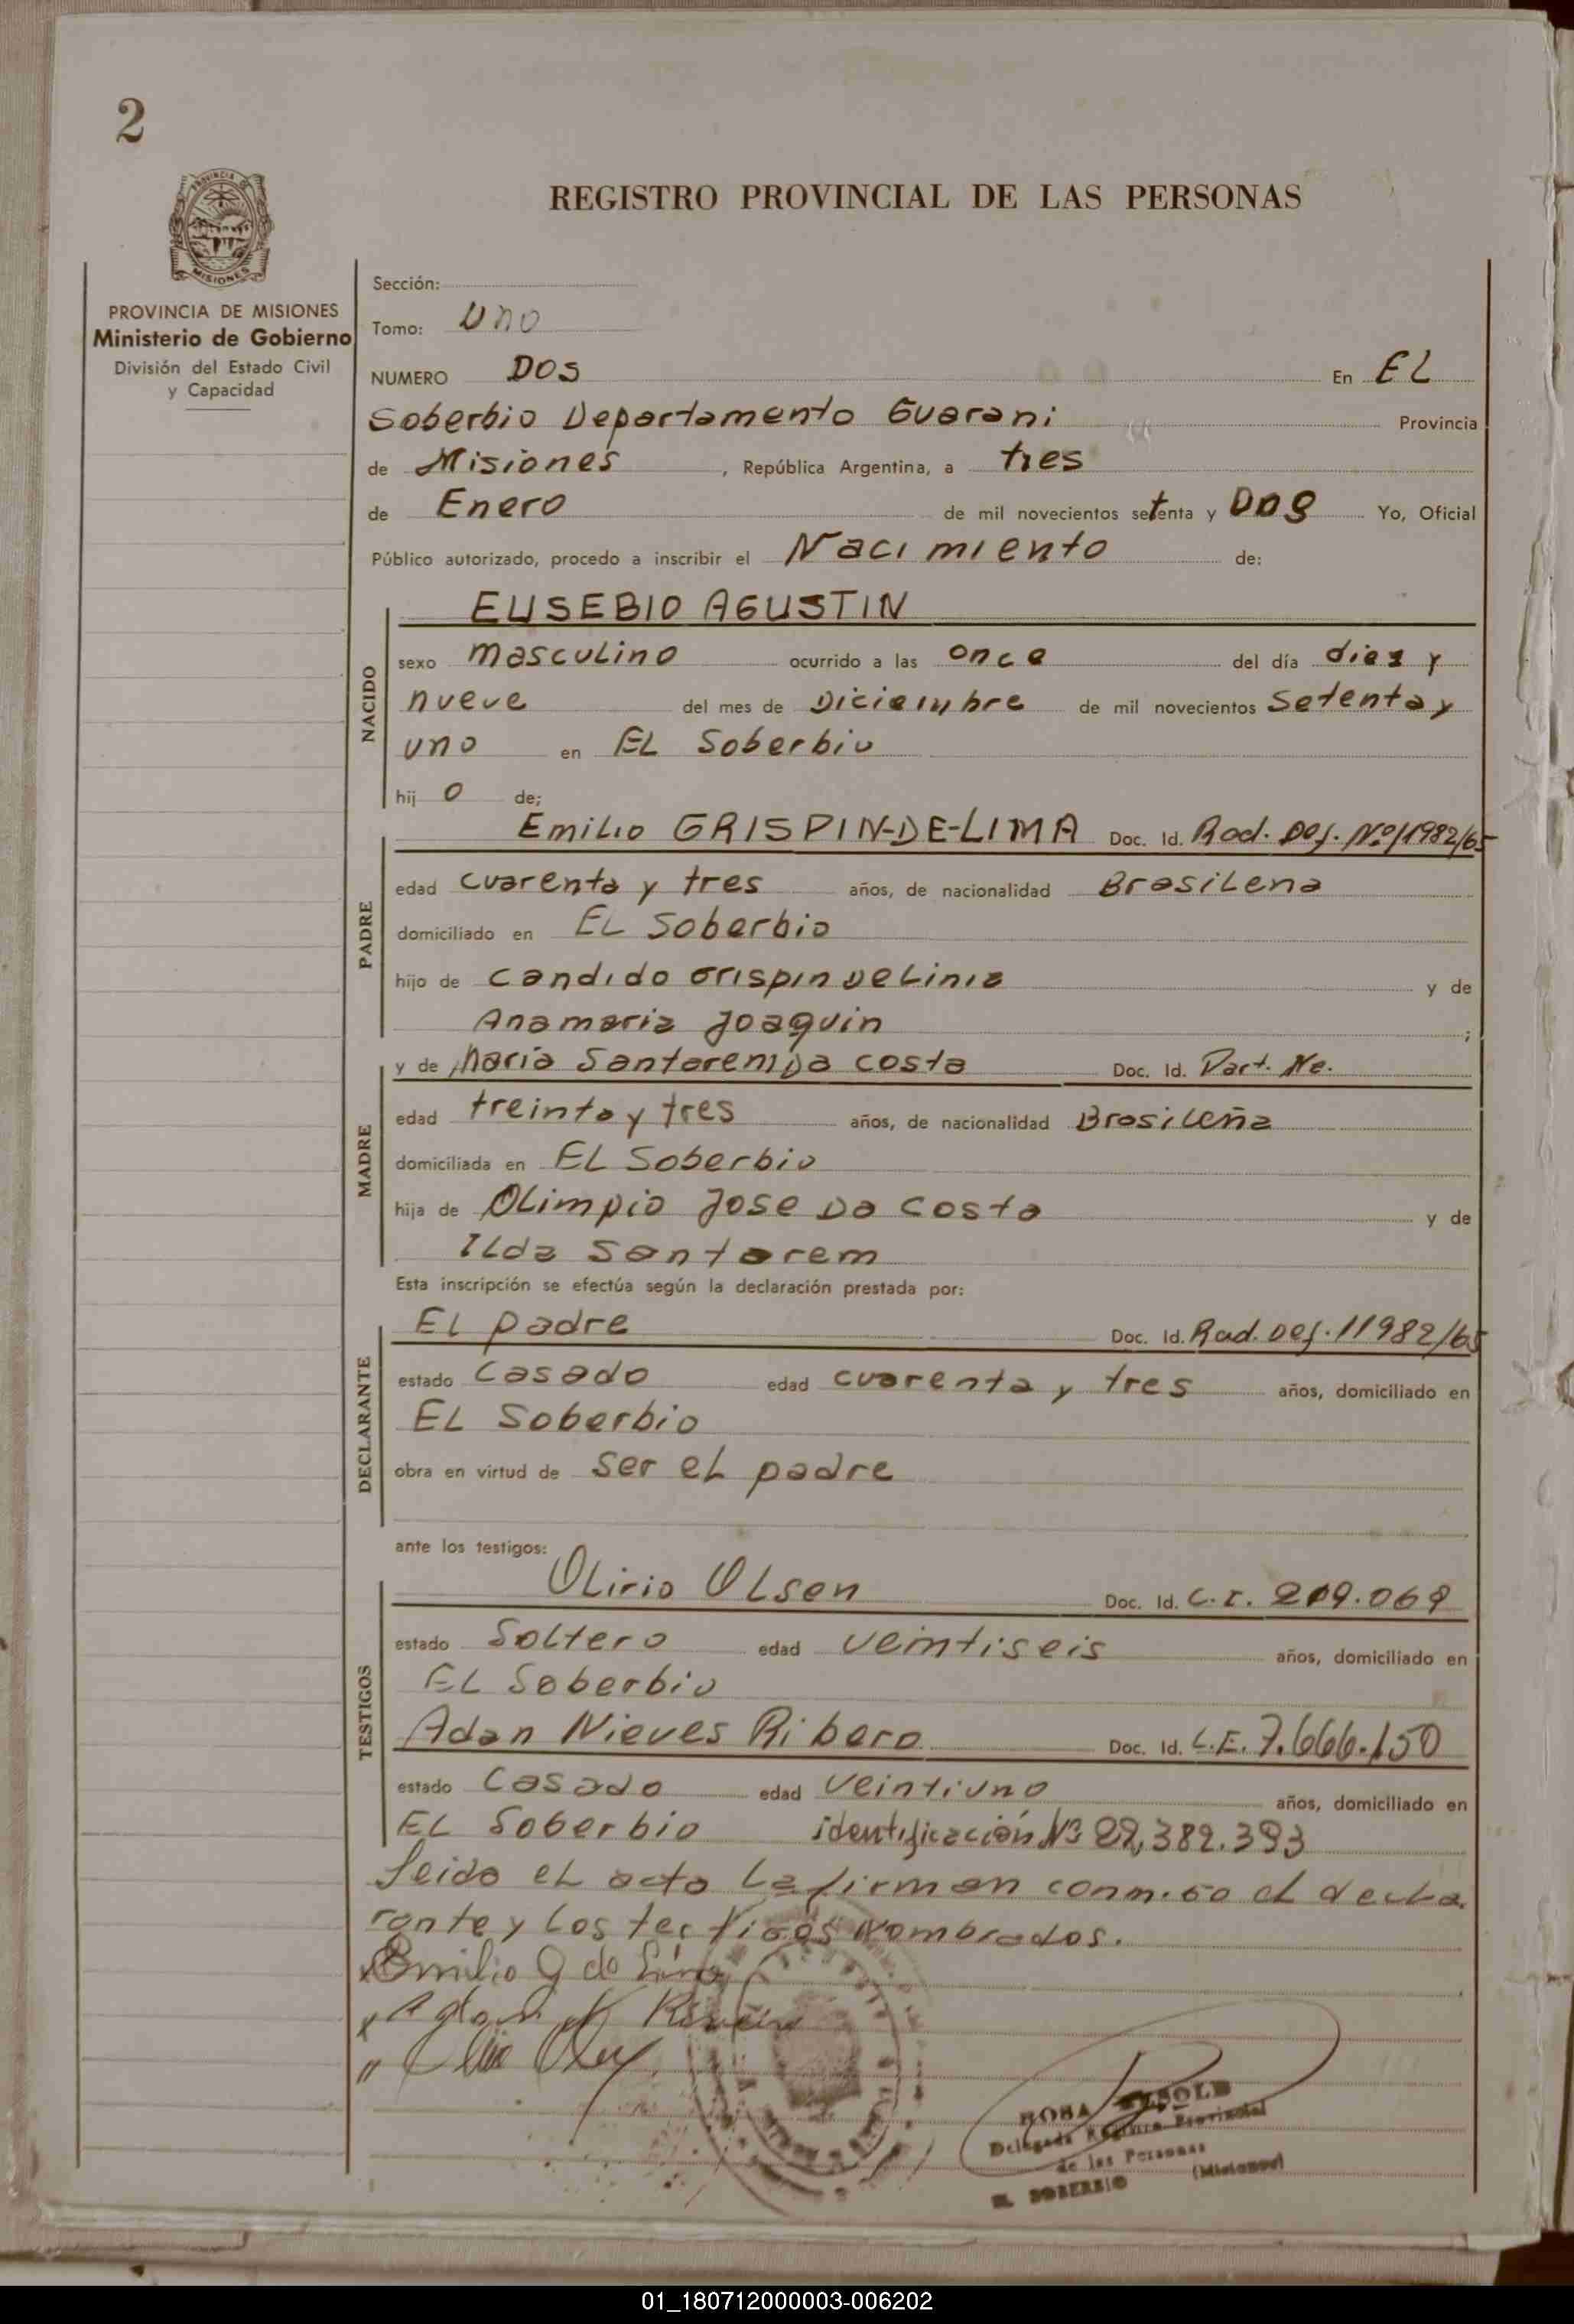 2
REGISTRO PROVINCIAL DE LAS PERSONAS
PROVINCIA DE MISIONES
MISIONES
PROVINCIA DE MISIONES
Ministerio de Gobierno
División del Estado Civil
y Capacidad
Sección:
Tomo: Uno
NUMERO DOS En EL
Soberbio Departamento Guarani Provincia
de Misiones, República Argentina, a tres
de Enero de mil novecientos setenta y Dos Yo, Oficial
Público autorizado, procedo a inscribir el Nacimiento de:
NACIDO
EUSEBIO AGUSTIN
sexo masculino ocurrido a las once del día diez y
nueve del mes de Diciembre de mil novecientos setenta y
uno en EL Soberbio
hij o de;
PADRE
Emilio GRISPIN-DE-LIMA Doc. Id. Rad. Def. Nº 11982/65
edad cuarenta y tres años, de nacionalidad Brasilena
domiciliado en EL Soberbio
hijo de Candido Grispin De Lima y de
Anamaria Joaquin ;
MADRE
y de Maria Santarem Da Costa Doc. Id. Part. Ne.
edad treinta y tres años, de nacionalidad Brasileña
domiciliada en EL Soberbio
hija de Olimpio Jose Da Costa y de
Ilda Santarem
Esta inscripción se efectúa según la declaración prestada por:
DECLARANTE
El padre Doc. Id. Rad. Def. 11982/65
estado Casado edad cuarenta y tres años, domiciliado en
EL Soberbio
obra en virtud de ser el padre
ante los testigos:
TESTIGOS
Olirio Olsen Doc. Id. C.I. 209.069
estado Soltero edad veintiseis años, domiciliado en
EL Soberbio
Adan Nieves Ribero Doc. Id. L.E. 7.666.150
estado Casado edad veintiuno años, domiciliado en
EL Soberbio identificación Nº 22.382.393
Leido el acta la firman conmigo el decla
rante y los testigos nombrados.
Emilio G de Lima
ROSA
Delegada Registro Provincial
de las Personas
EL SOBERBIO (Misiones)
01_180712000003-006202